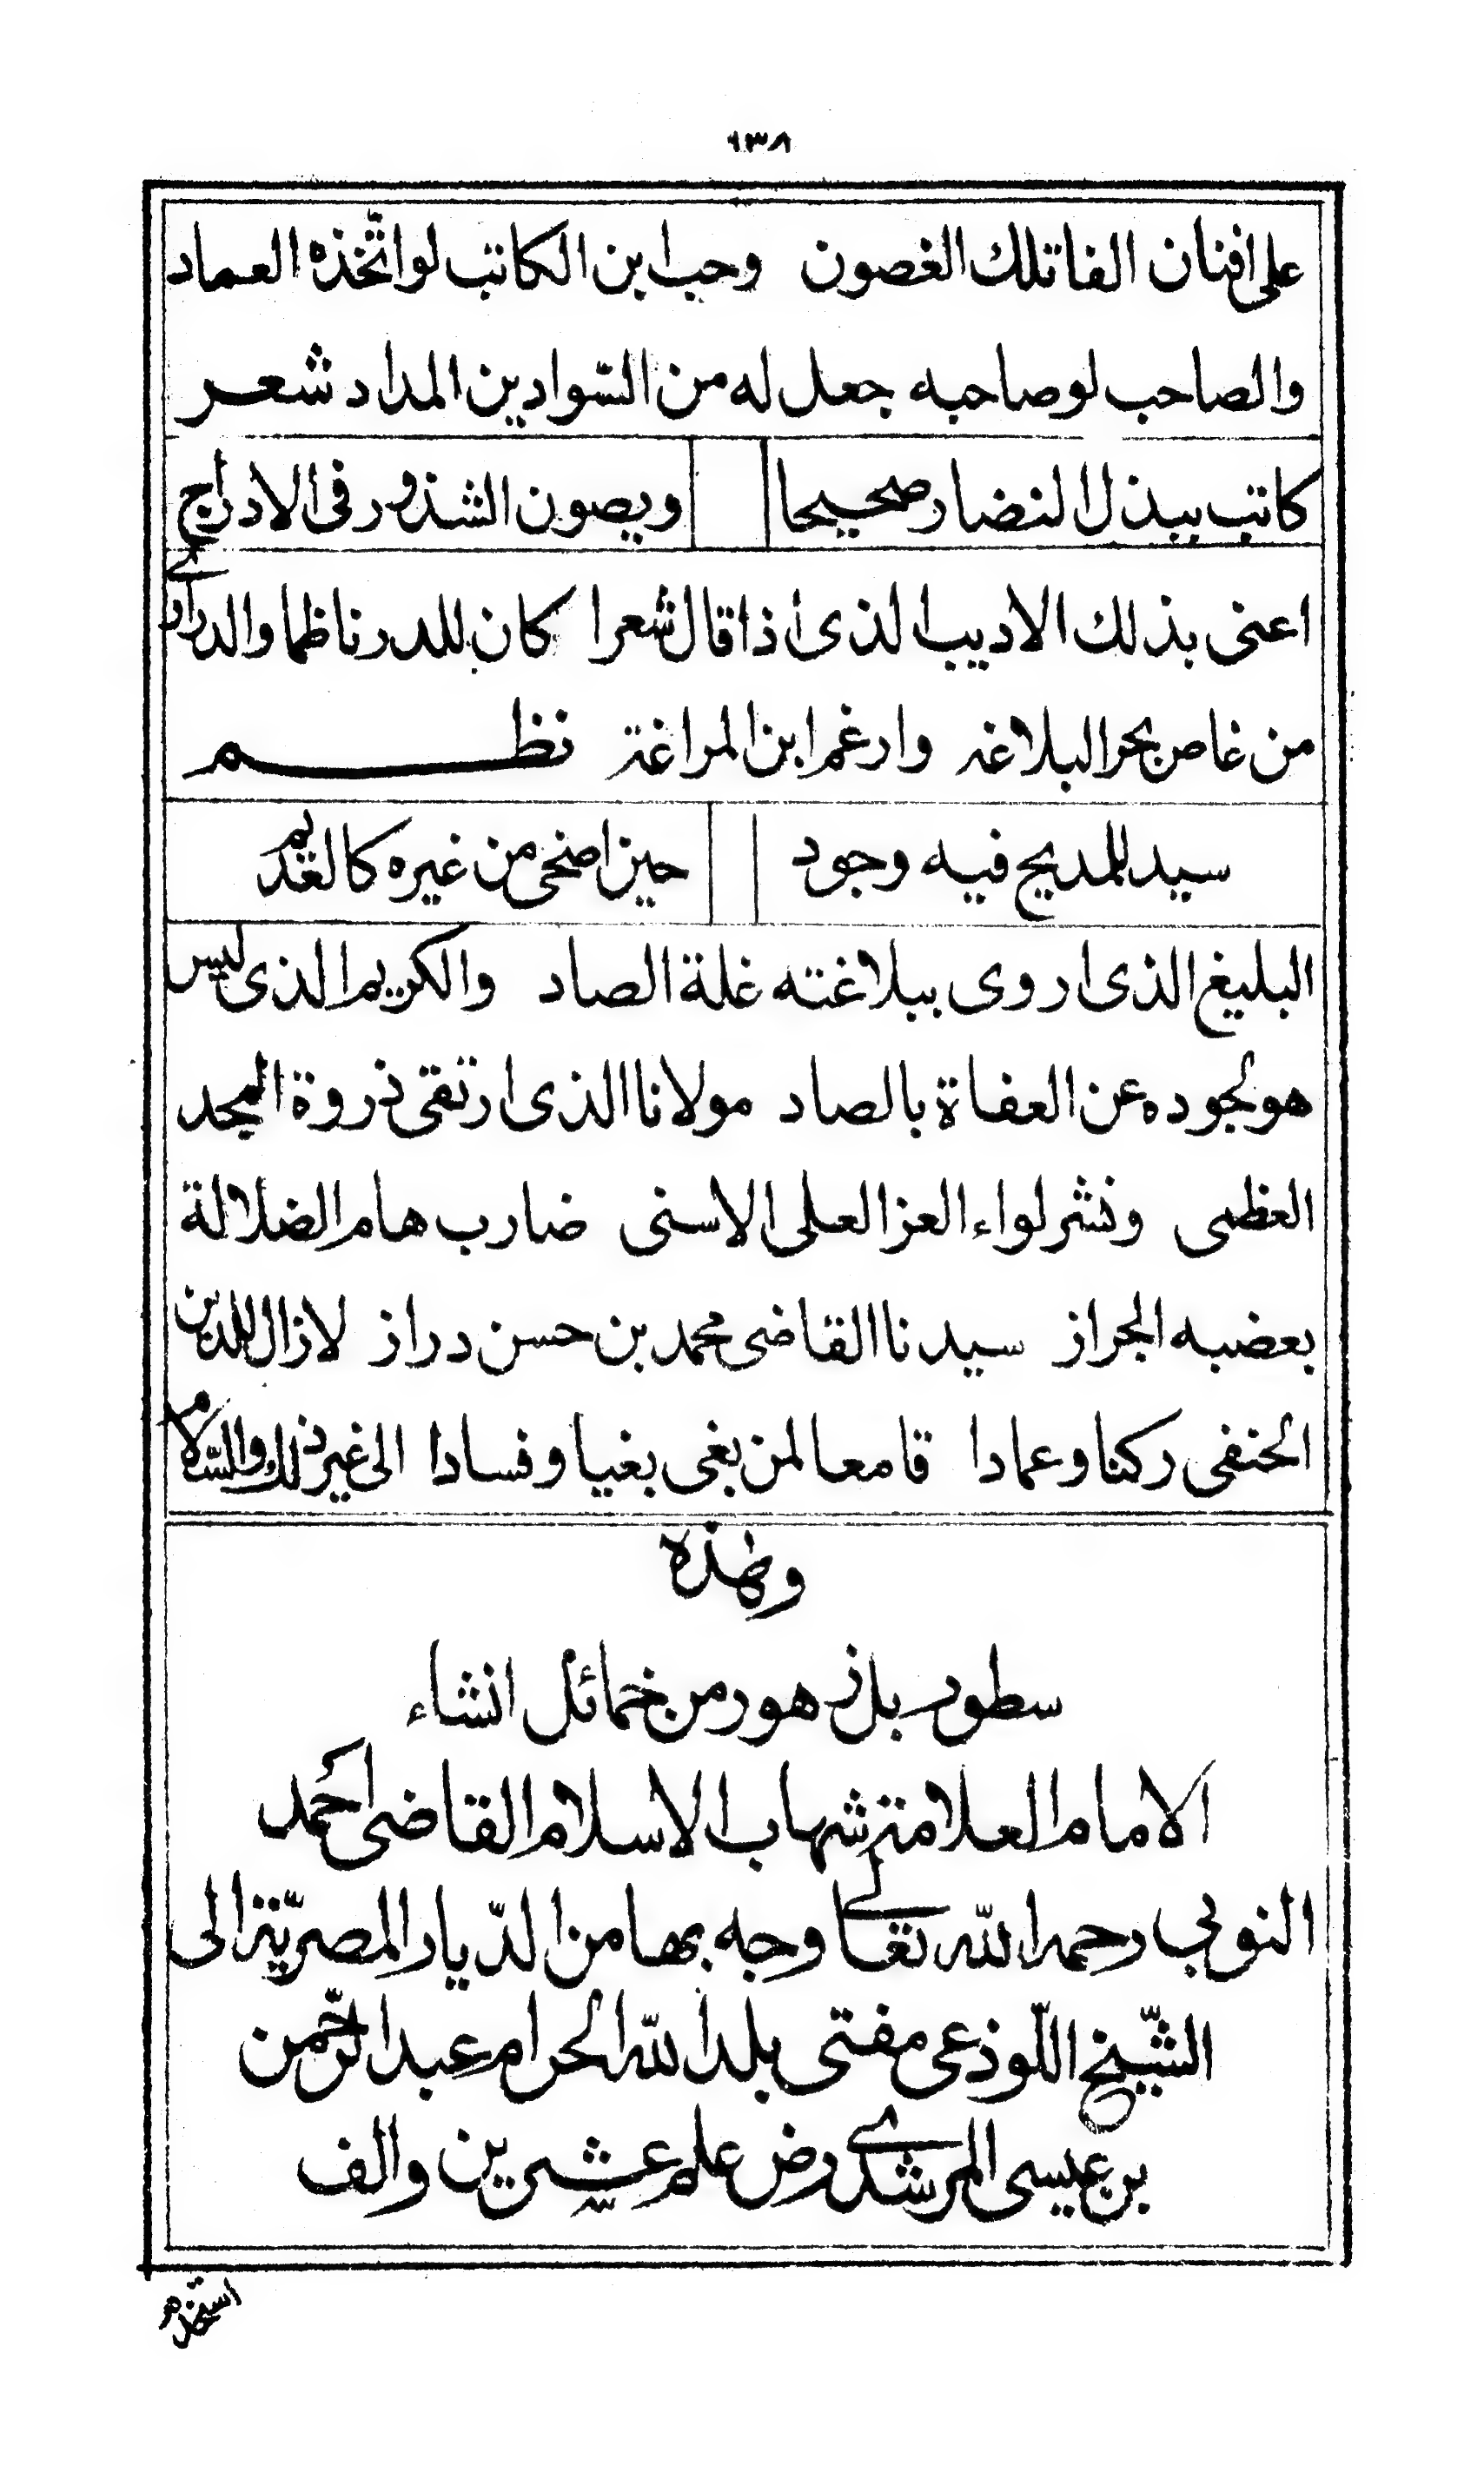 ١٣٨
على افنان الفا تلك الغصون وحب ابن الكاتب لو اتّخذه العماد
والصاحب لو صاحبه جعل له من السّوادين المداد شعر
كاتب يبذل النضار صحيحا ويصون الشذور فى الادراج
اعنى بذلك الاديب الذى اذا قال شعرا كان للدر ناظما والدرارى
من غاص بحر البلاغه وارغم ابن المراغة نظم
سيد للمديح فيه وجود حين اضحى من غيره كالقديم
البليغ الذى اروى ببلاغته غلة الصاد والكريم الذى ليس
هو لجوده عن العفاة بالصاد مولانا الذى ارتقى ذروة المجد
العظمى ونشر لواء العز العلى الاسنى ضارب هام الضلالة
بعضبه الجراز سيدنا القاضى محمد بن حسن دراز لازال للدين
الحنفى ركنا وعمادا قامعا لمن بغى بغيا وفسادا الى غير ذلك والسّلام
وهذه
سطور بل زهور من خمائل انشاء
الامام العلامة شهاب الاسلام القاضى احمد
النوبي رحمه اللّه تعالى وجه بها من الدّيار المصريّة الى
الشّيخ اللّوذعى مفتى بلد اللّه الحرام عبد الرّحمن
بن عيسى المرشدى رض عام عشرين والف
استخدم